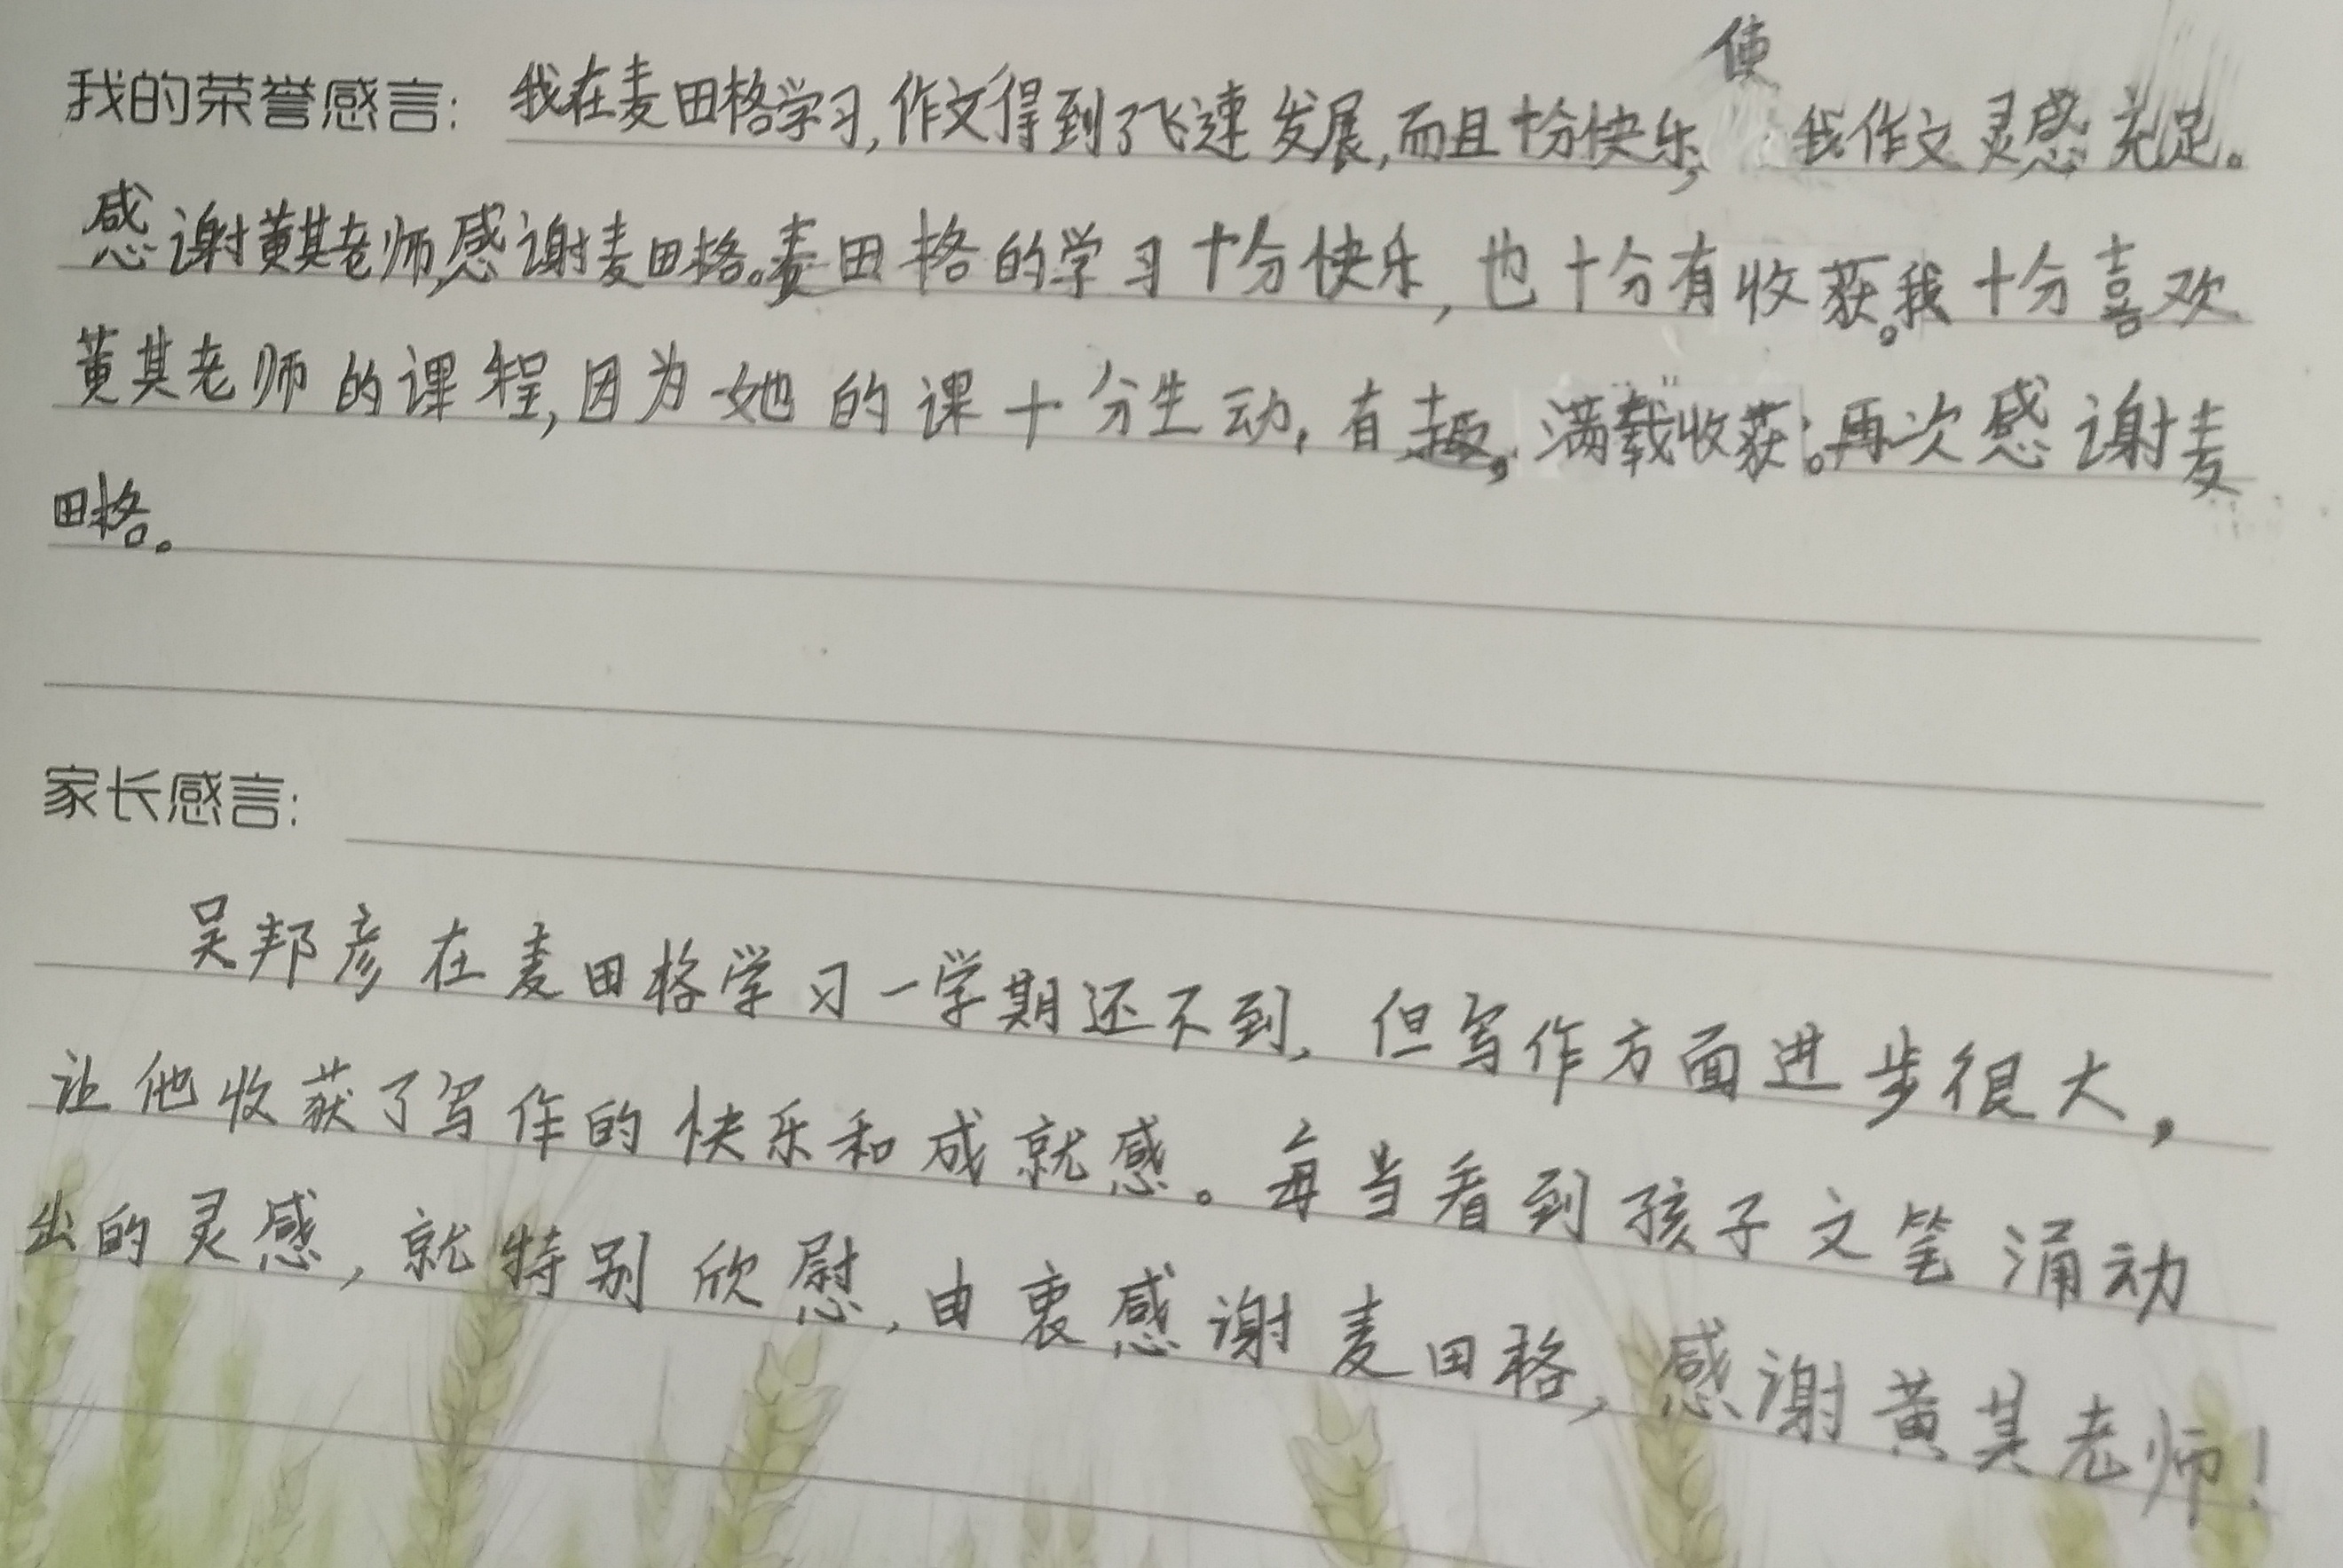 我的荣誉感言：我在麦田格学习,作文得到了飞速发展,而且十分快乐,使我作文灵感充足。
感谢黄其老师,感谢麦田格。麦田格的学习十分快乐,也十分有收获。我十分喜欢
黄其老师的课程,因为她的课十分生动,有趣,满载收获。再次感谢麦
田格。
家长感言：
吴邦彦在麦田格学习一学期还不到,但写作方面进步很大,
让他收获了写作的快乐和成就感。每当看到孩子文笔涌动
出的灵感,就特别欣慰,由衷感谢麦田格,感谢黄其老师！